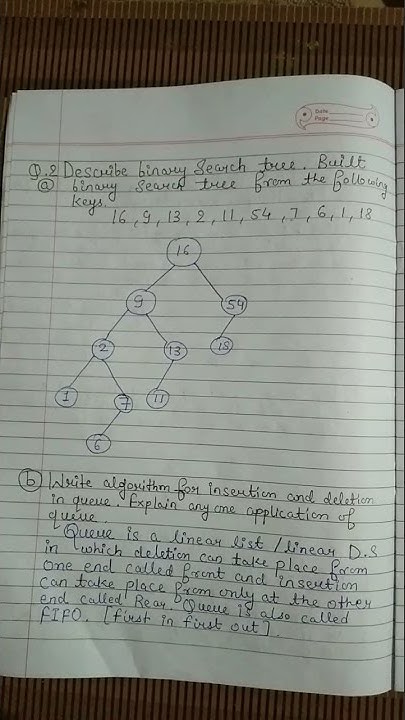 Date
Page
Q.2 Describe binary search tree. Built
(a) binary search tree from the following
keys.
16, 9, 13, 2, 11, 54, 7, 6, 1, 18
16
9 54
2 13 18
1 7 11
6
(b) Write algorithm for insertion and deletion
in queue. Explain any one application of
queue.
Queue is a linear list / linear D.S
in which deletion can take place from
one end called front and insertion
can take place from only at the other
end called Rear. Queue is also called
FIFO. [first in first out].